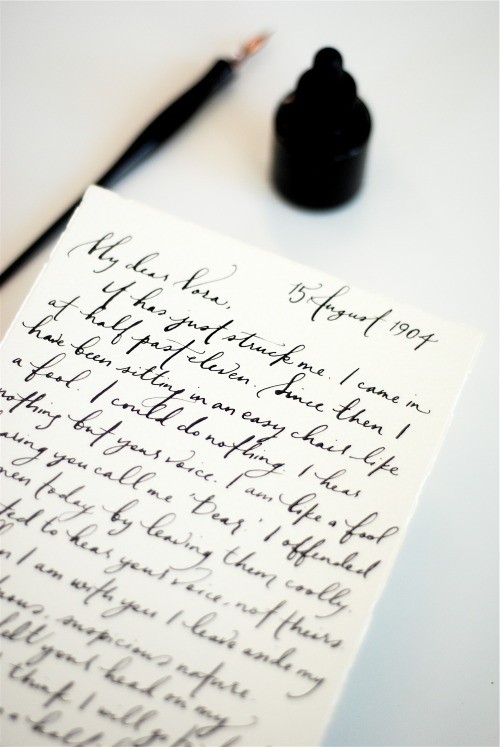 15 August 1904
My dear Nora,
it has just struck me. I came in
at half past eleven. Since then I
have been sitting in an easy chair like
a fool. I could do nothing. I hear
nothing but your voice. I am like a fool
aring you call me 'Dear.' I offended
men today by leaving them coolly.
ted to hear your voice, not theirs.
n I am with you I leave aside my
uous, suspicious nature.
elt your head on my
think I will go
a half